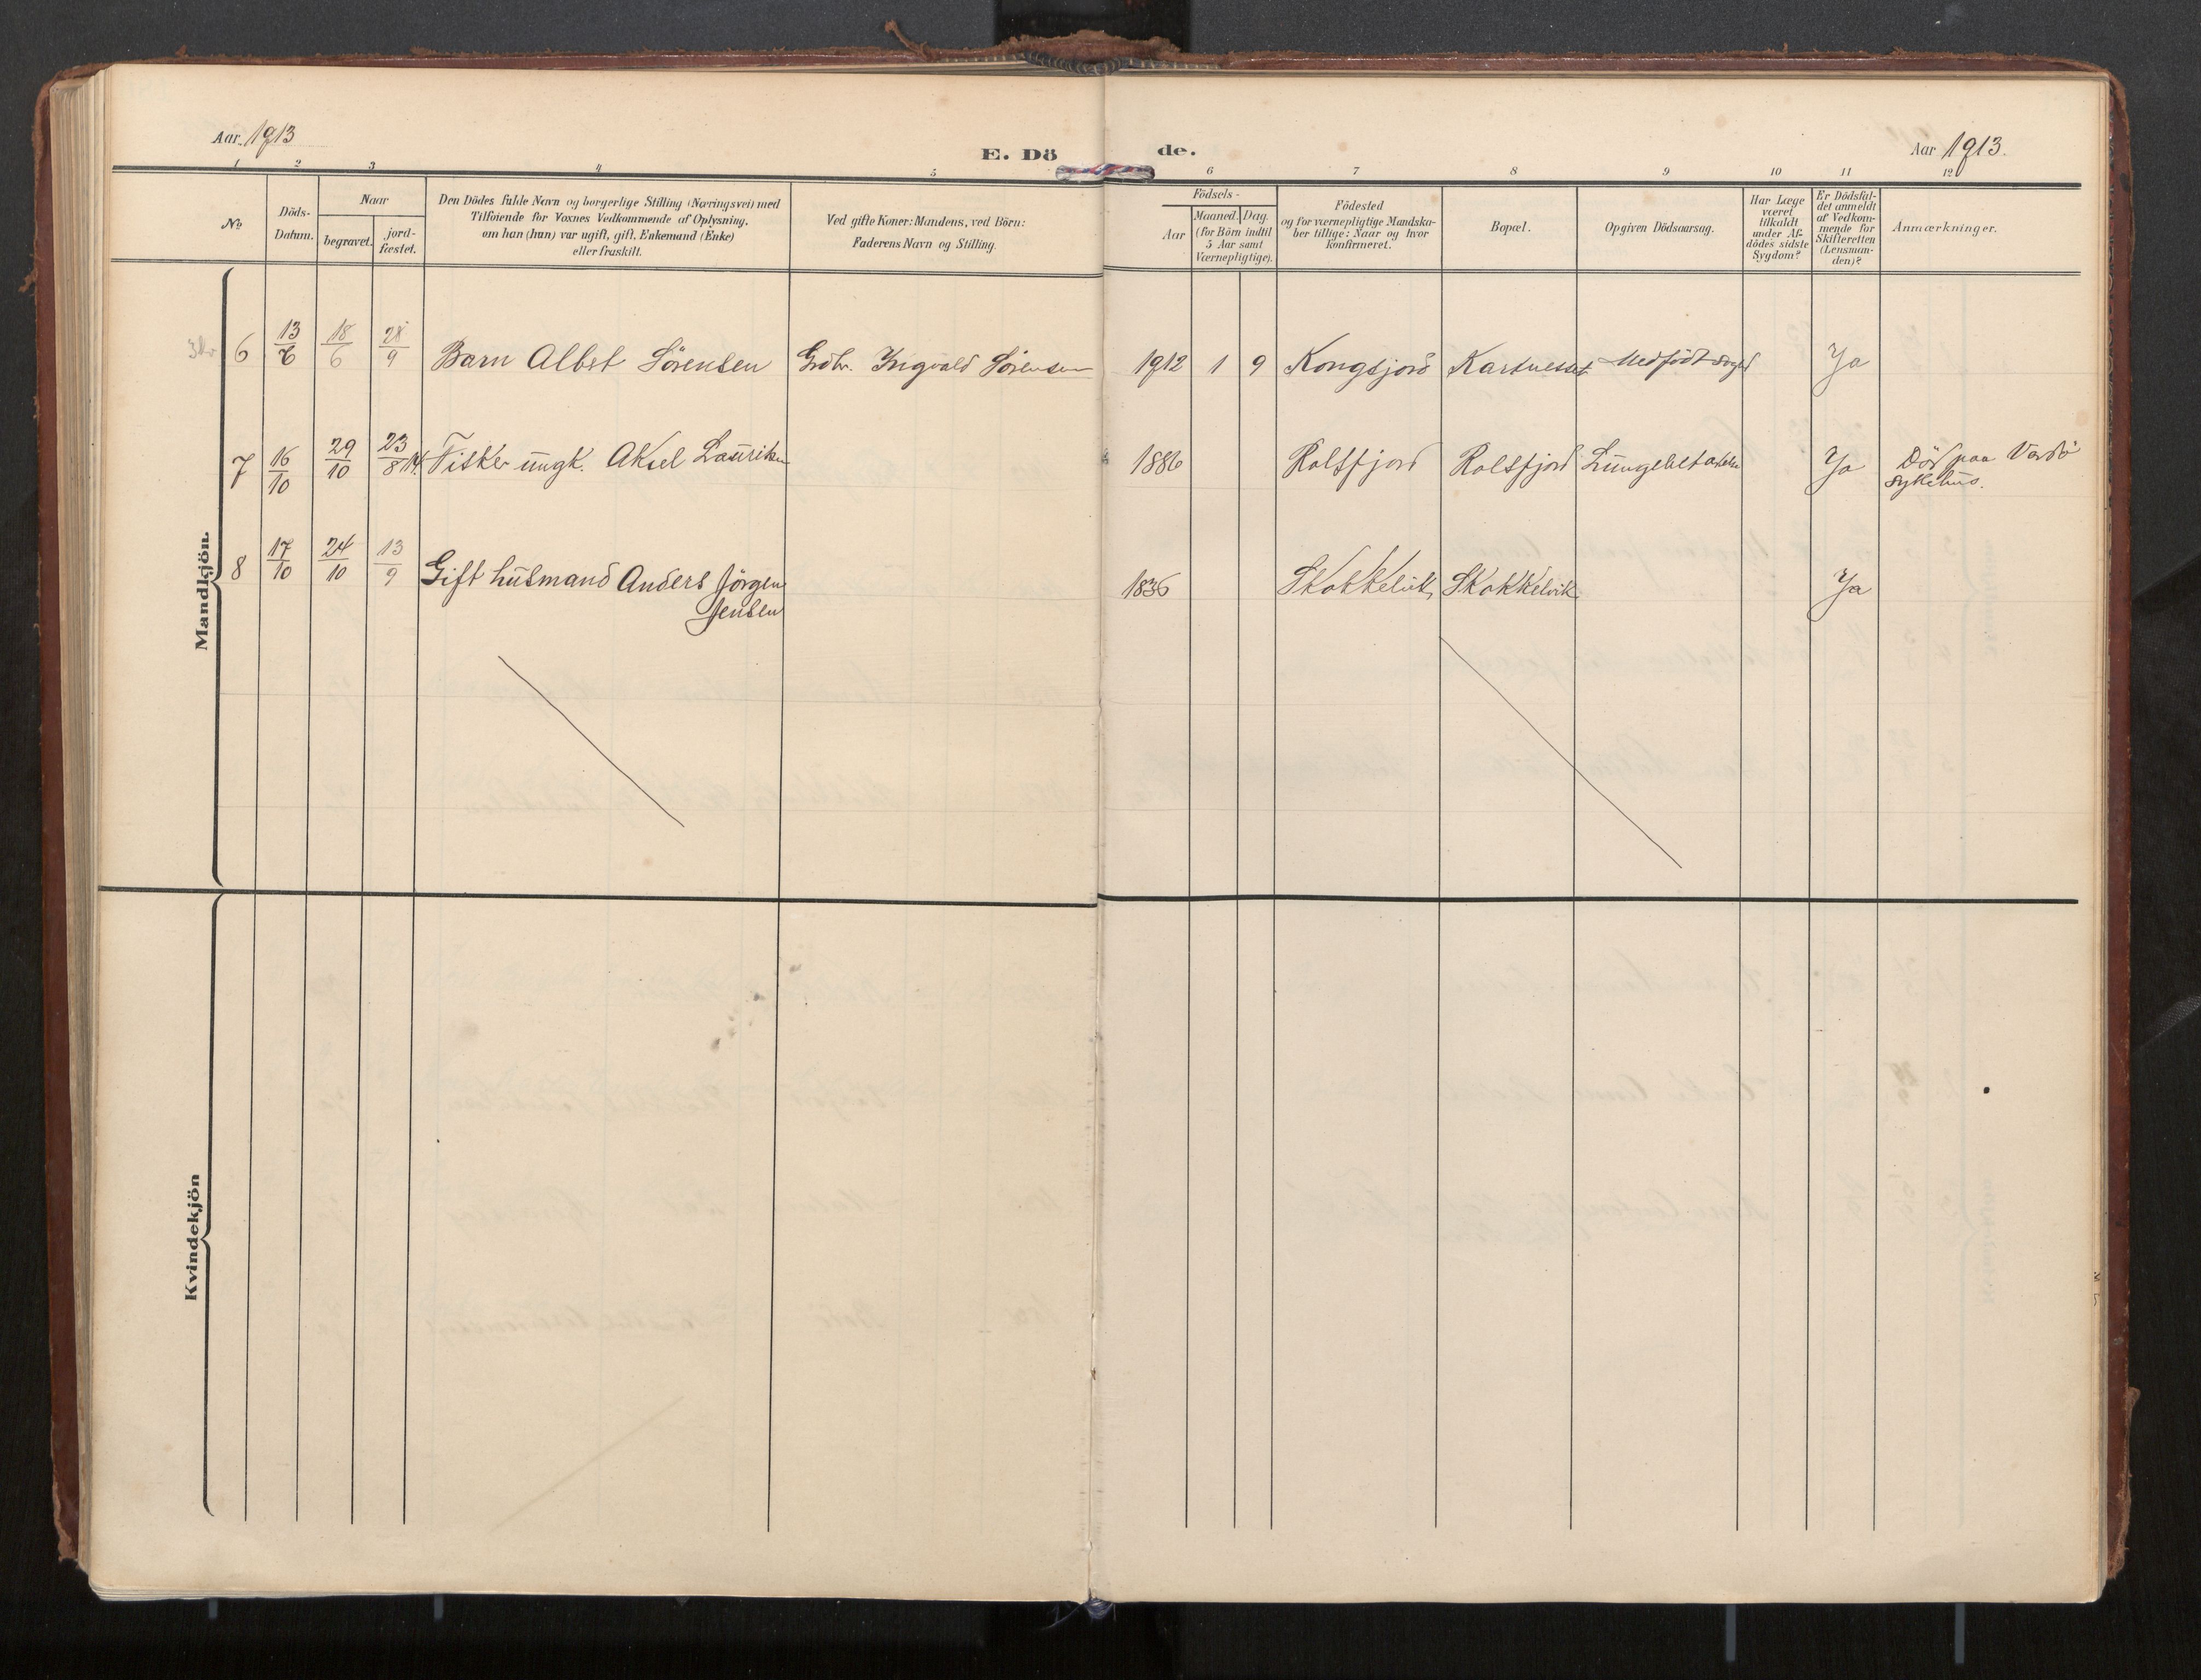 Aar. 1913
E. Dö
de.
Aar 1913.
1 2 3 4 5 6 7 8 9 10 11 12
No
Döds-
Datum.
Naar
begravet.
jord-
fæstet.
Den Dödes fulde Navn og borgerlige Stilling (Næringsvei) med
Tilföiende for Voxnes Vedkommende af Oplysning.
om han (hun) var ugift, gift, Enkemand (Enke)
eller fraskilt.
Ved gifte Koner: Mandens, ved Börn:
Faderens Navn og Stilling.
Födsels-
Aar
Maaned. Dag.
(for Börn indtil
5 Aar samt
Værnepligtige).
Födested
og for værnepligtige Mandska-
ber tillige: Naar og hvor
Konfirmeret.
Bopæl.
Opgiven Dödsaarsag.
Har Læge
været
tilkaldt
under Af-
dödes sidste
Sygdom?
Er Dödsfal-
det anmeldt
af Vedkom-
mende for
Skifteretten
(Lensman-
den)?
Anmærkninger.
Mandkjön.
6 13/6 18/6 28/9 Barn Albert Sörensen Grdbr. Ingvald Sörensen 1912 1 9 Kongsfjord Medfödt Ja
7 16/10 29/10 23/8 14. Fisker ungk. Aksel Lauriksen 1886 Rolffjord Rolffjord Ja Död paa Vardö
sykehus.
8 17/10 24/10 13/9 Gift husmand Anders Jörgen
Jensen 1836 Skokkelvik Skokkelvik Ja
Kvindekjön